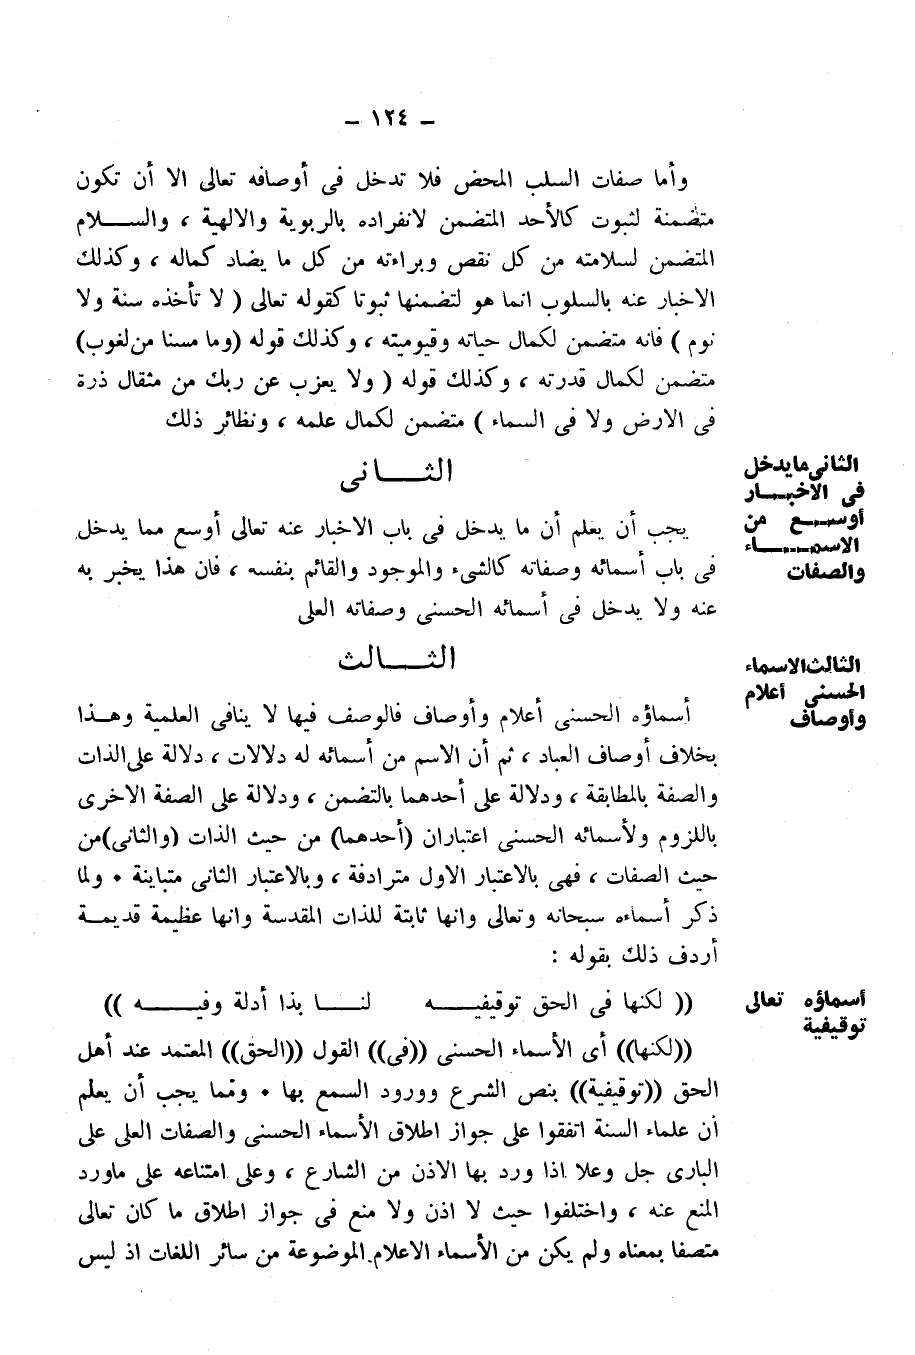 – ١٢٤ –
وأما صفات السلب المحض فلا تدخل فى أوصافه تعالى الا أن تكون
متضمنة لثبوت كالأحد المتضمن لانفراده بالربوية والالهية ، والسلام
المتضمن لسلامته من كل نقص وبراءته من كل ما يضاد كماله ، وكذلك
الاخبار عنه بالسلوب انما هو لتضمنها ثبوتا كقوله تعالى ( لا تأخذه سنة ولا
نوم ) فانه متضمن لكمال حياته وقيوميته ، وكذلك قوله (وما مسنا من لغوب)
متضمن لكمال قدرته ، وكذلك قوله ( ولا يعزب عن ربك من مثقال ذرة
فى الارض ولا فى السماء ) متضمن لكمال علمه ، ونظائر ذلك
الثانى
الثانى ما يدخل
فى الاخبار
أوسع من
الاسماء
والصفات
يجب أن يعلم أن ما يدخل فى باب الاخبار عنه تعالى أوسع مما يدخل
فى باب أسمائه وصفاته كالشىء والموجود والقائم بنفسه ، فان هذا يخبر به
عنه ولا يدخل فى أسمائه الحسنى وصفاته العلى
الثالث
الثالث الاسماء
الحسنى أعلام
وأوصاف
أسماؤه الحسنى أعلام وأوصاف فالوصف فيها لا ينافى العلمية وهذا
بخلاف أوصاف العباد ، ثم أن الاسم من أسمائه له دلالات ، دلالة على الذات
والصفة بالمطابقة ، ودلالة على أحدهما بالتضمن ، ودلالة على الصفة الاخرى
باللزوم ولأسمائه الحسنى اعتباران (أحدهما) من حيث الذات (والثانى) من
حيث الصفات ، فهى بالاعتبار الاول مترادفة ، وبالاعتبار الثانى متباينة • ولما
ذكر أسماءه سبحانه وتعالى وانها ثابتة للذات المقدسة وانها عظيمة قديمة
أردف ذلك بقوله :
(( لكنها فى الحق توقيفيه لنا بذا أدلة وفيه ))
أسماؤه تعالى
توقيفية
((لكنها)) أى الأسماء الحسنى ((فى)) القول ((الحق)) المعتمد عند أهل
الحق ((توقيفية)) بنص الشرع وورود السمع بها • ومما يجب أن يعلم
أن علماء السنة اتفقوا على جواز اطلاق الأسماء الحسنى والصفات العلى على
البارى جل وعلا اذا ورد بها الاذن من الشارع ، وعلى امتناعه على ماورد
المنع عنه ، واختلفوا حيث لا اذن ولا منع فى جواز اطلاق ما كان تعالى
متصفا بمعناه ولم يكن من الأسماء الاعلام الموضوعة من سائر اللغات اذ ليس